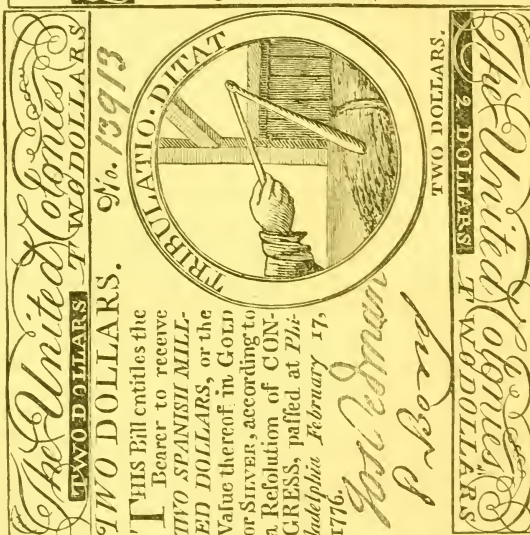 The United Colonies
TWO DOLLARS TWO DOLLARS
TWO DOLLARS. No. 13913
THIS Bill entitles the
Bearer to receive
TWO SPANISH MILL-
ED DOLLARS, or the
Value thereof in GOLD
or SILVER, according to
a Reſolution of CON-
GRESS, paſſed at Phi-
ladelphia February 17,
1776.
TRIBULATIO. DITAT
TWO DOLLARS.
2 DOLLARS
The United Colonies
TWO DOLLARS